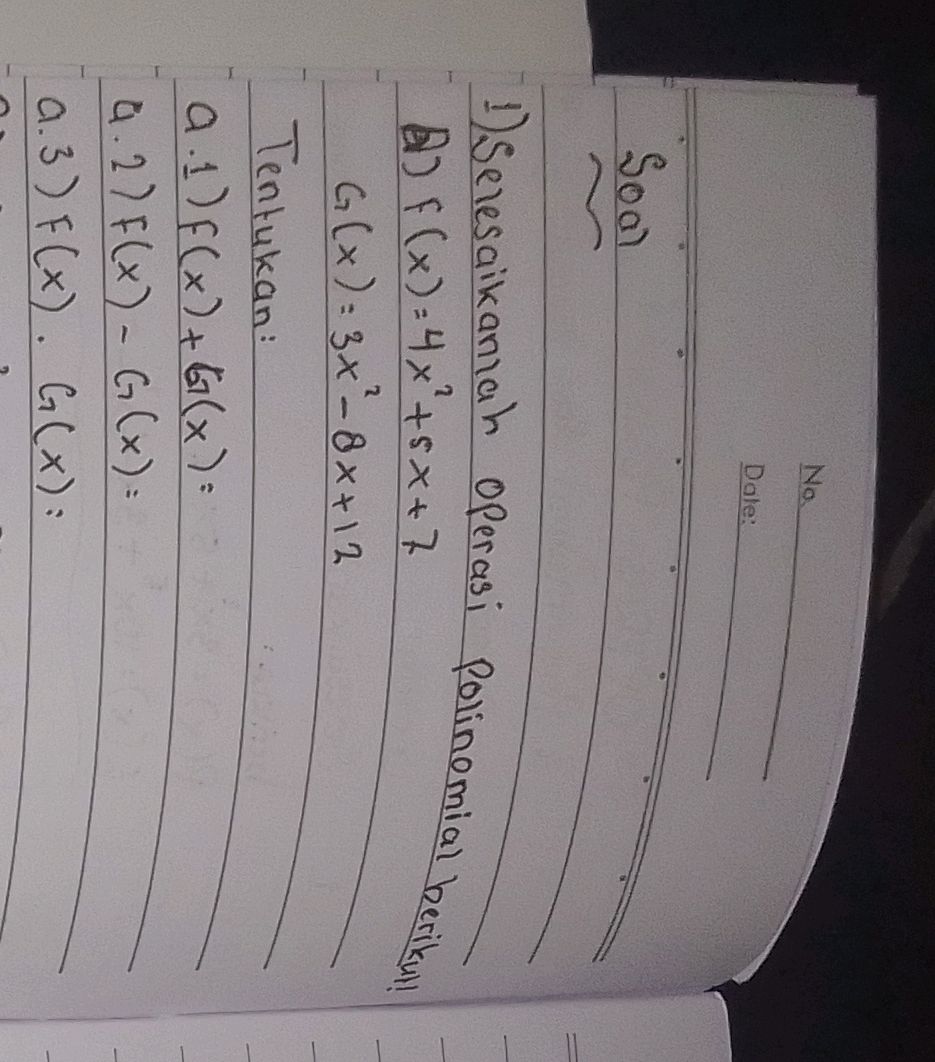 No.
Date:
Soal
1) Selesaikanlah operasi polinomial berikut!
A) F(x) = 4x² + 5x + 7
G(x) = 3x² - 8x + 12
Tentukan:
a.1) F(x) + G(x) =
a.2) F(x) - G(x) =
a.3) F(x) . G(x) =